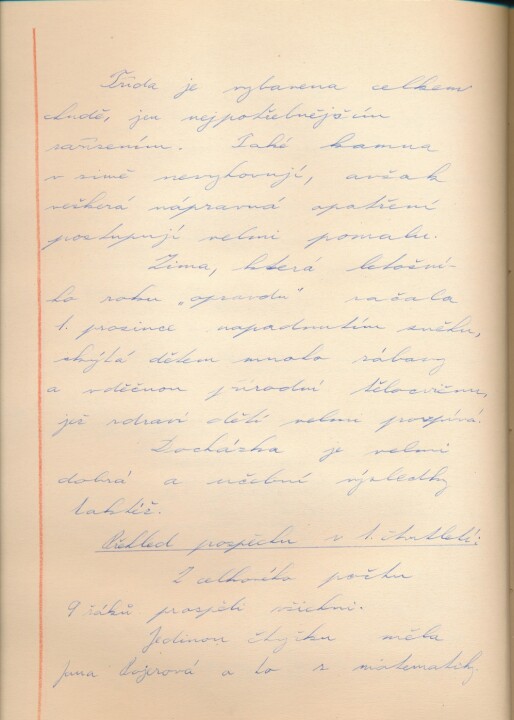 Třída je vybavena celkem
chudě, jen nejpotřebnějším
zařízením. Také kamna
v zimě nevyhovují, avšak
veškerá nápravná opatření
postupují velmi pomalu.
Zima, která letošní-
ho roku „opravdu" začala
1. prosince napadnutím sněhu,
skýtá dětem mnoho zábavy
a vděčnou přírodní tělocvičnu,
jež zdraví dětí velmi prospívá.
Docházka je velmi
dobrá a učební výsledky
taktéž.
Přehled prospěchu v 1. čtvrtletí:
Z celkového počtu
9 žáků prospěli všichni.
Jedinou čtyřku měla
Jana a to z matematiky.